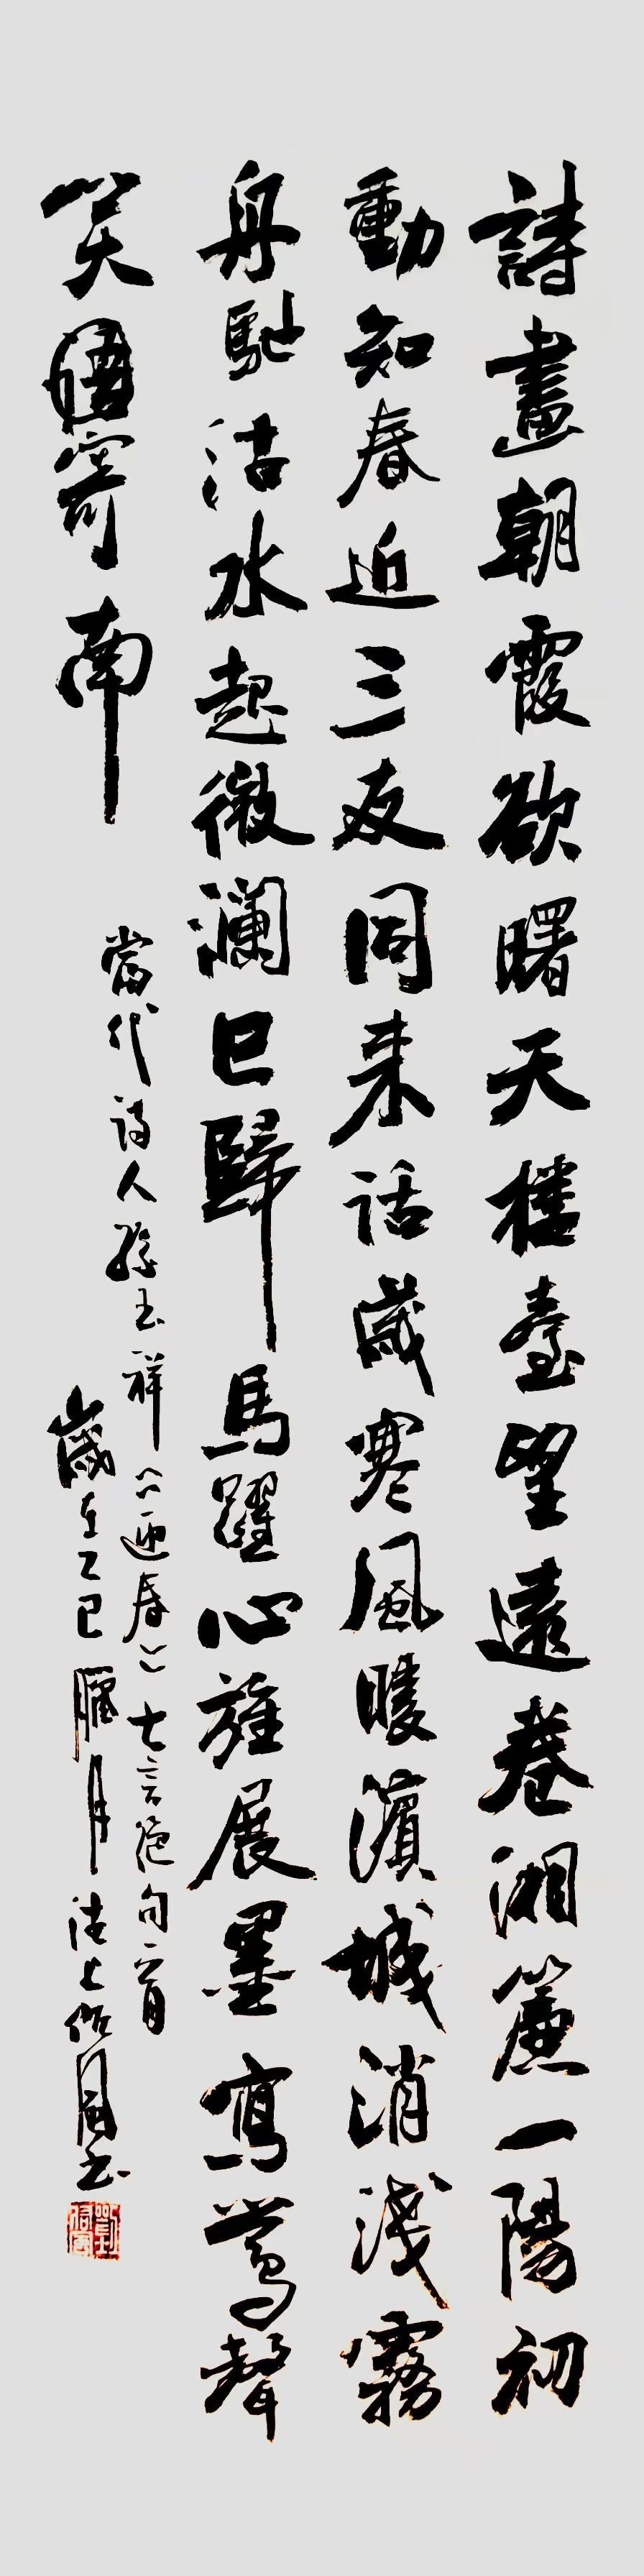 詩畫朝霞欲曙天樓臺望遠卷湘簾一陽初
動知春近三友同来话歲寒風暖濱城消淺霧
舟馳沽水起微瀾巳歸馬躍心旌展墨寫鶯聲
笑南
當代诗人孫玉祥《迎春》七言絕句二首
歲在乙巳臘月沽上书